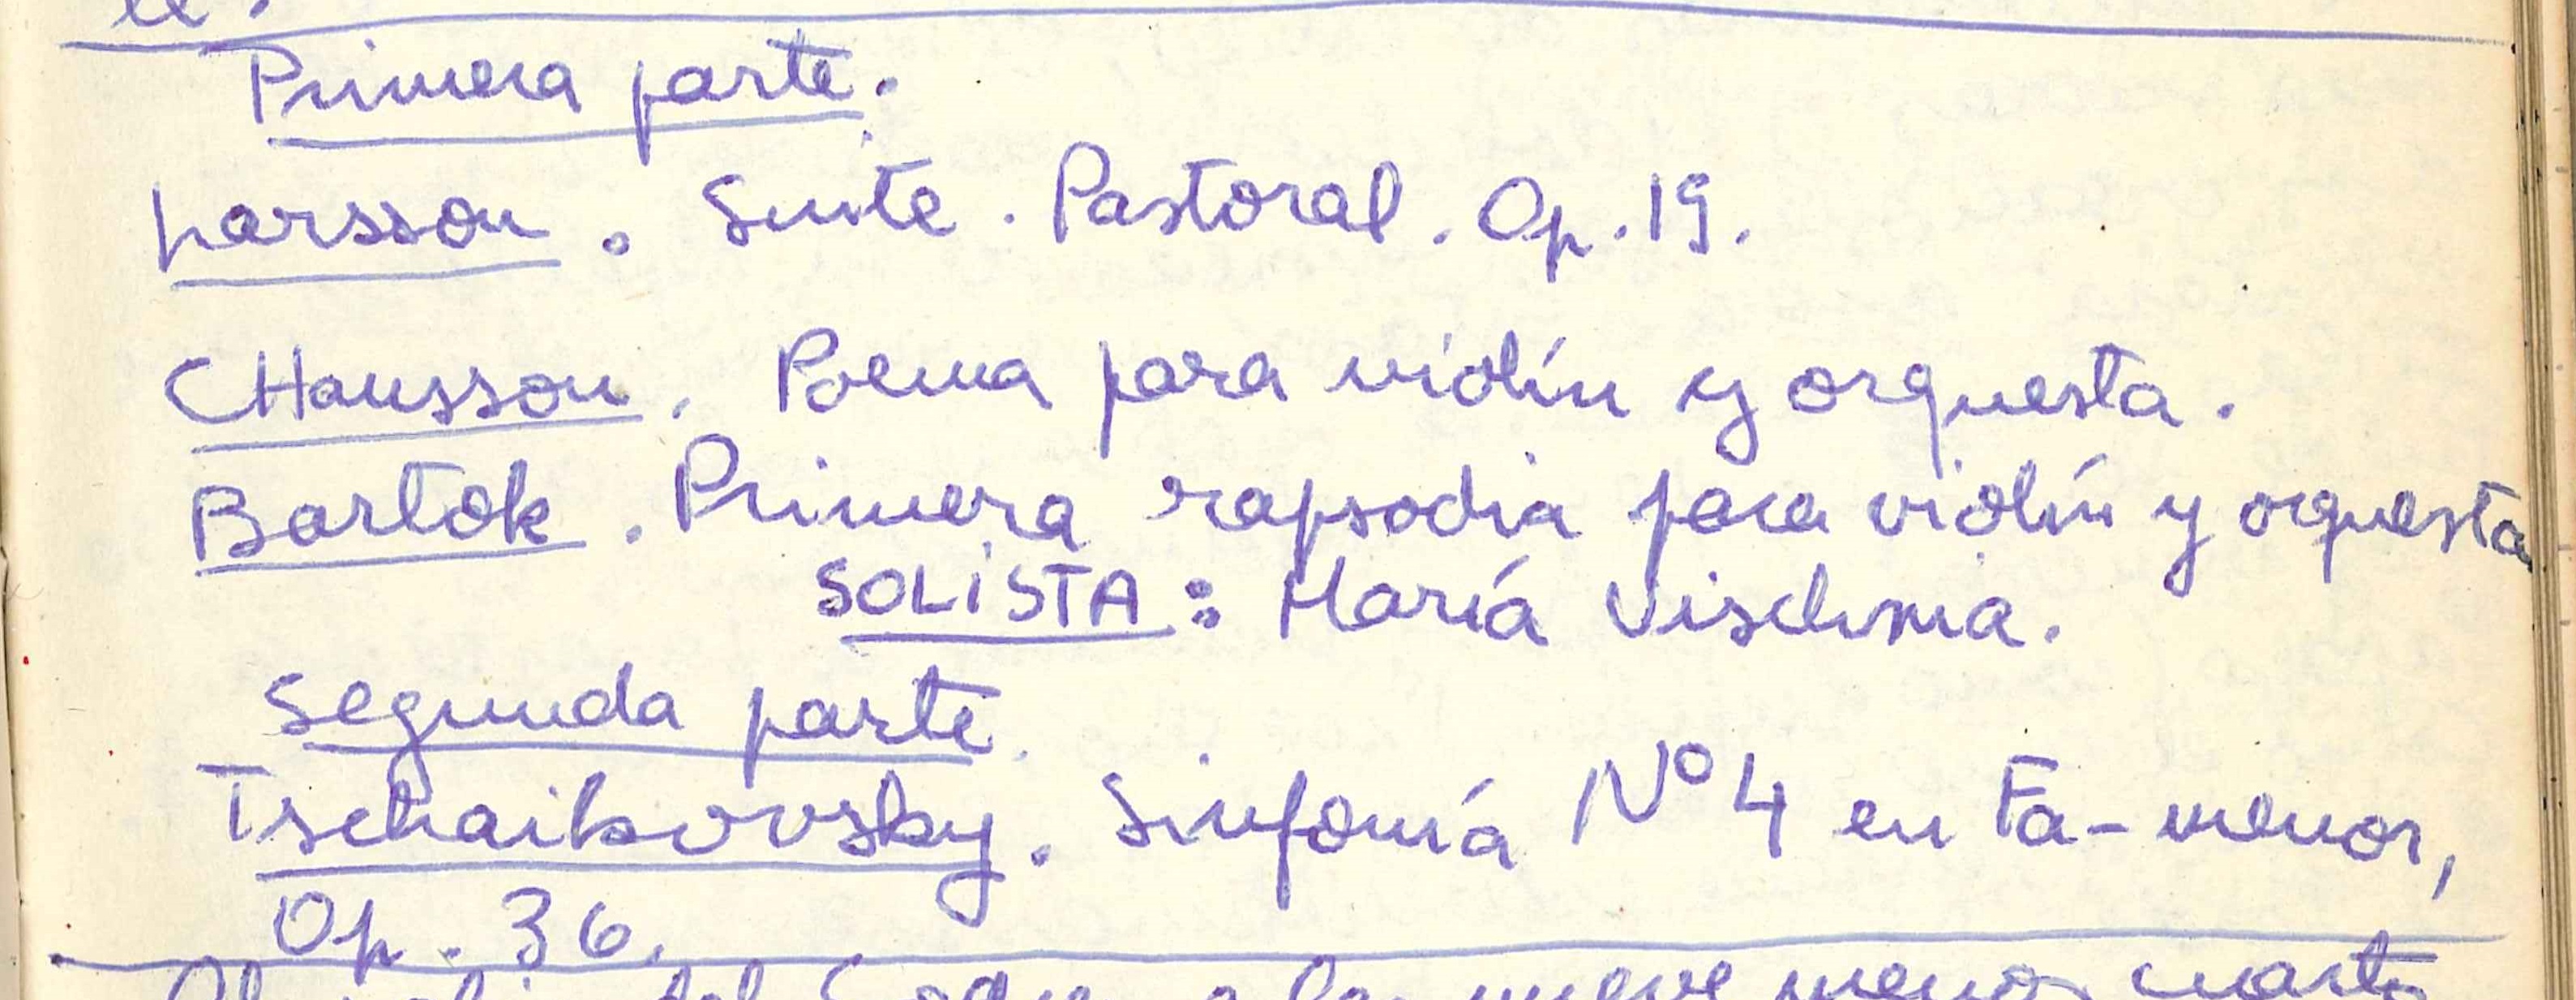 Primera parte.
Larsson. Suite. Pastoral. Op. 19.
CHausson. Poema para violín y orquesta.
Bartok. Primera rapsodia para violín y orquesta
SOLISTA: María Vischnia.
Segunda parte.
Tschaikovsky. Sinfonía Nº 4 en Fa-menor,
Op. 36.
del Sodre a las nueve menos cuarto